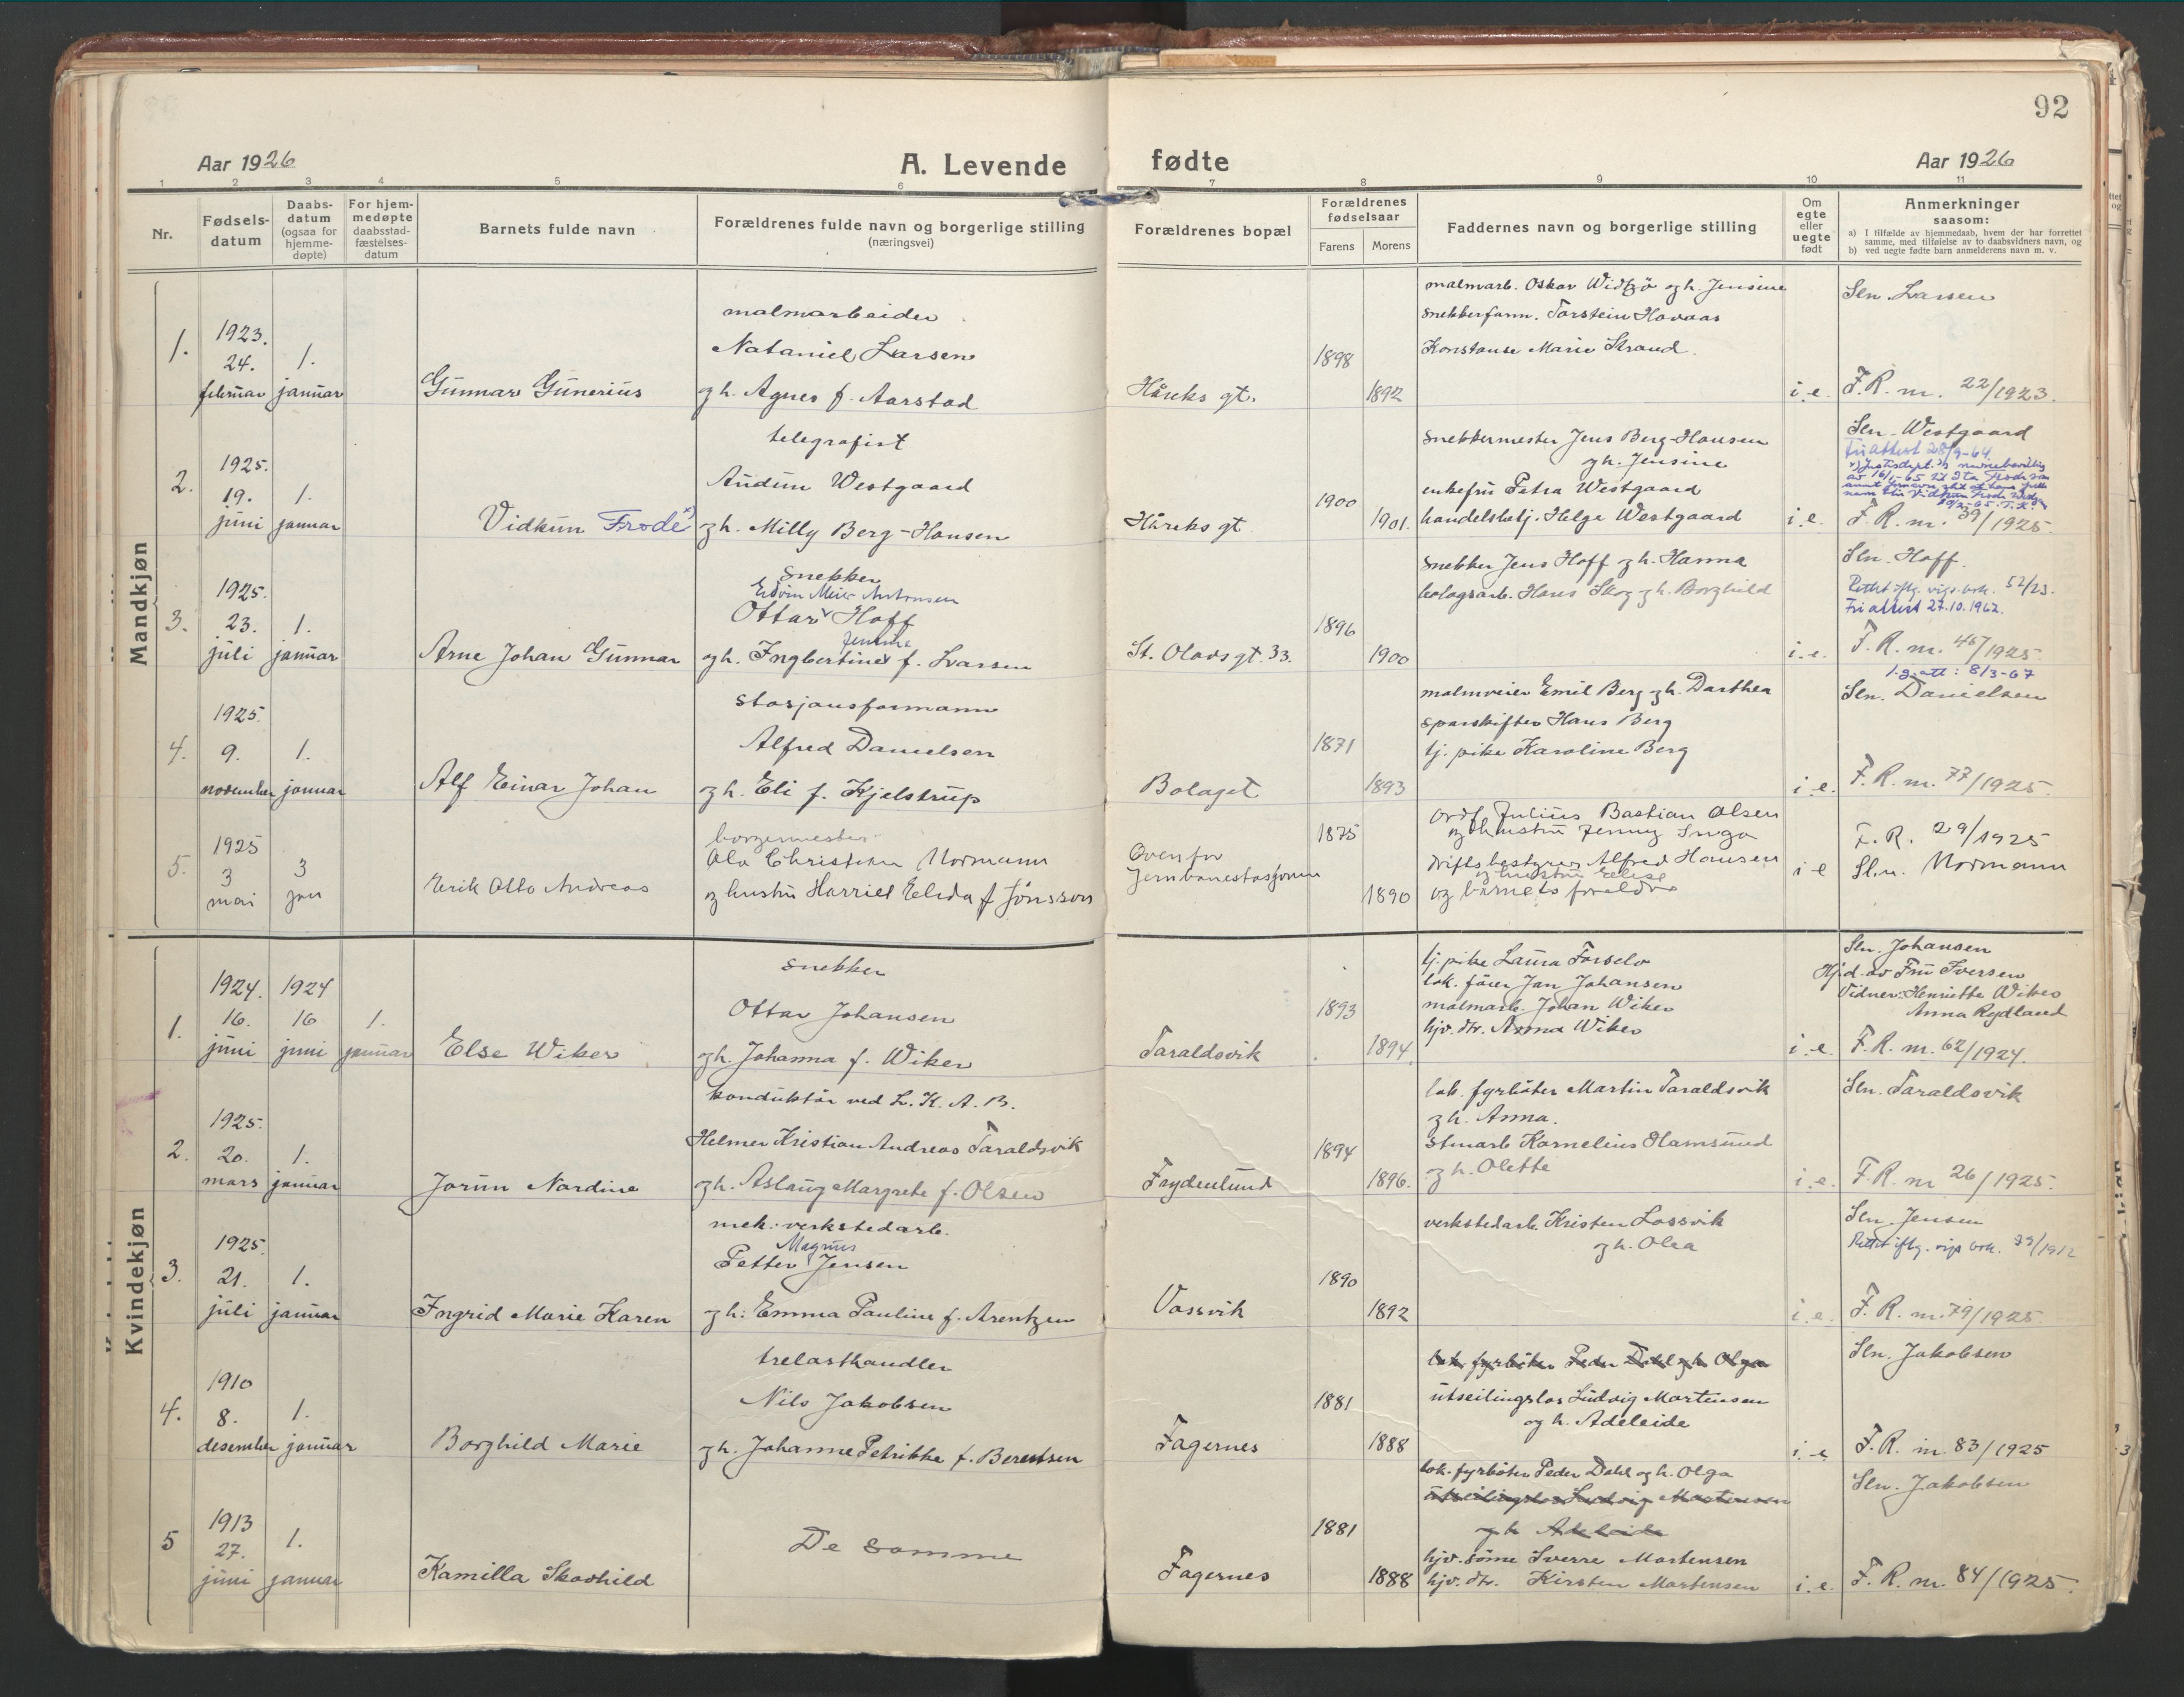 92
Aar 1926
A. Levende fødte
Aar 1926
1 2 3 4 5 6 7 8 9 10 11
Nr.
Fødsels-
datum
Daabs-
datum
(ogsaa for
hjemme-
døpte)
For hjem-
medøpte
daabsstad-
fæstelses-
datum
Barnets fulde navn
Forældrenes fulde navn og borgerlige stilling
(næringsvei)
Forældrenes bopæl
Forældrenes
fødselsaar
Farens Morens
Faddernes navn og borgerlige stilling
Om
egte
eller
uegte
født
Anmerkninger
saasom:
a) I tilfælde av hjemmedaab, hvem der har forrettet
samme, med tilføielse av to daabsvidners navn, og
b) ved uegte fødte barn anmelderens navn m. v.
Mandkjøn
1.
1923.
24.
februar
1.
januar
Gunnar Gunerius
malmarbeider
Nataniel Larsen
og h. Agnes f. Aarstad
Håreks gt.
1898
1892
malmarb. Oskar Widsjö og h. Jensine
snekkerform. Torstein Hovaas
Konstanse Marie Strand.
i. e.
Sln. Larsen
F. R. nr. 22/1923.
2.
1925.
19.
juni
1.
januar
Vidkun Frode x)
telegrafist
Audun Westgaard
og h. Milly Berg-Hansen
Håreks gt.
1900
1901.
snekkermester Jens Berg-Hansen
og h. Jensine
enkefru Petra Westgaard
handelsbetj. Helge Westgaard
i. e.
Sln. Westgaard
Fri attest 28/9-64.
F. R. nr. 39/1925.
3.
1925.
23.
juli
1.
januar
Arne Johan Gunnar
snekker
Edvin Meier Antonsen
Ottar Hoff
Jensine
og h. Ingbertine f. Larsen
St. Olavs gt. 33.
1896
1900
snekker Jens Hoff og h. Hanna
bologsarb. Hans Skog og h. Borghild
i. e.
Sln. Hoff.
Rettet iflg. vigs. bok. 52/23.
Fri attest 27.10.1962.
F. R. nr. 46/1925.
4.
1925.
9.
november
1.
januar
Alf Einar Johan
stasjonsformann
Alfred Danielsen
og h. Eli f. Kjelstrup
Bolaget
1871
1893
malmveier Emil Berg og h. Darthea
sporskifter Hans Berg
tj. pike Karoline Berg
i. e.
: 8/3-67
Sln. Danielsen
F. R. nr. 77/1925.
5.
1925
3
mai
3
jan
Erik Otto Andreas
borgermester
Ola Christian Normann
og hustru Harriet Elida f Jönsson
Ovenfor
Jernbanestasjonen
1875
1890
ordf. Julius Bastian Olsen
og hustru Jenny Inga
driftsbestyrer Alfred Hansen
og hustru Elise
og barnets foreldre
i e
F. R. 29/1925
Sln. Normann
Kvindekjøn
1.
1924.
16.
juni
1924
16
juni
1.
januar
Else Wiker
snekker
Ottar Johansen
og h. Johanna f. Wiker
Taraldsvik
1893
1894.
tj. pike Laura Forselv
lok. fører Jan Johansen
malmarb. Johan Wiker
hjv. dtr. Anna Wiker
i. e.
Sln. Johansen
Hj.d. av Fru Iversen
Vidner: Henriette Wiker
Anna Rydland
F. R. nr. 62/1924.
2.
1925.
20.
mars
1.
januar
Jorun Nordine
konduktør ved L. K. A. B.
Helmer Kristian Andreas Taraldsvik
og h. Aslaug Margrete f. Olsen
Frydenlund
1894
1896.
lok. fyrbøter Martin Taraldsvik
og h. Anna.
stuearb Kornelius Hamsund
og h. Olette
i. e.
Sln. Taraldsvik
F. R. nr 26/1925.
3.
1925.
21.
juli
1.
januar
Ingrid Marie Karen
mek. verkstedarb.
Magnus
Petter Jensen
og h: Emma Pauline f. Arentzen
Vassvik
1890
1892
verkstedarb. Kristen Lossvik
og h. Olea
i. e.
Sln. Jensen
Rettet iflg. vigs bok. 39/1912
F. R. nr. 79/1925.
4.
1910
8.
desember
1.
januar
Borghild Marie
trelasthandler
Nils Jakobsen
og h. Johanne Petrikke f. Berentsen
Fagernes
1881
1888
lok. fyrbøter Peder Dahl og h. Olga
utseilingslos Ludvig Mortensen
og h. Adeleide
i. e
Sln. Jakobsen
F. R. nr. 83/1925
5
1913
27.
juni
1.
januar
Kamilla Skovhild
De samme
Fagernes
1881
1888
lok. fyrbøter Peder Dahl og h. Olga
utseilingslos Ludvig Mortensen
og h Adeleide
hjv. sønn Sverre Mortensen
hjv. dtr. Kirsten Mortensen
i. e.
Sln. Jakobsen
F. R. nr. 84/1925.